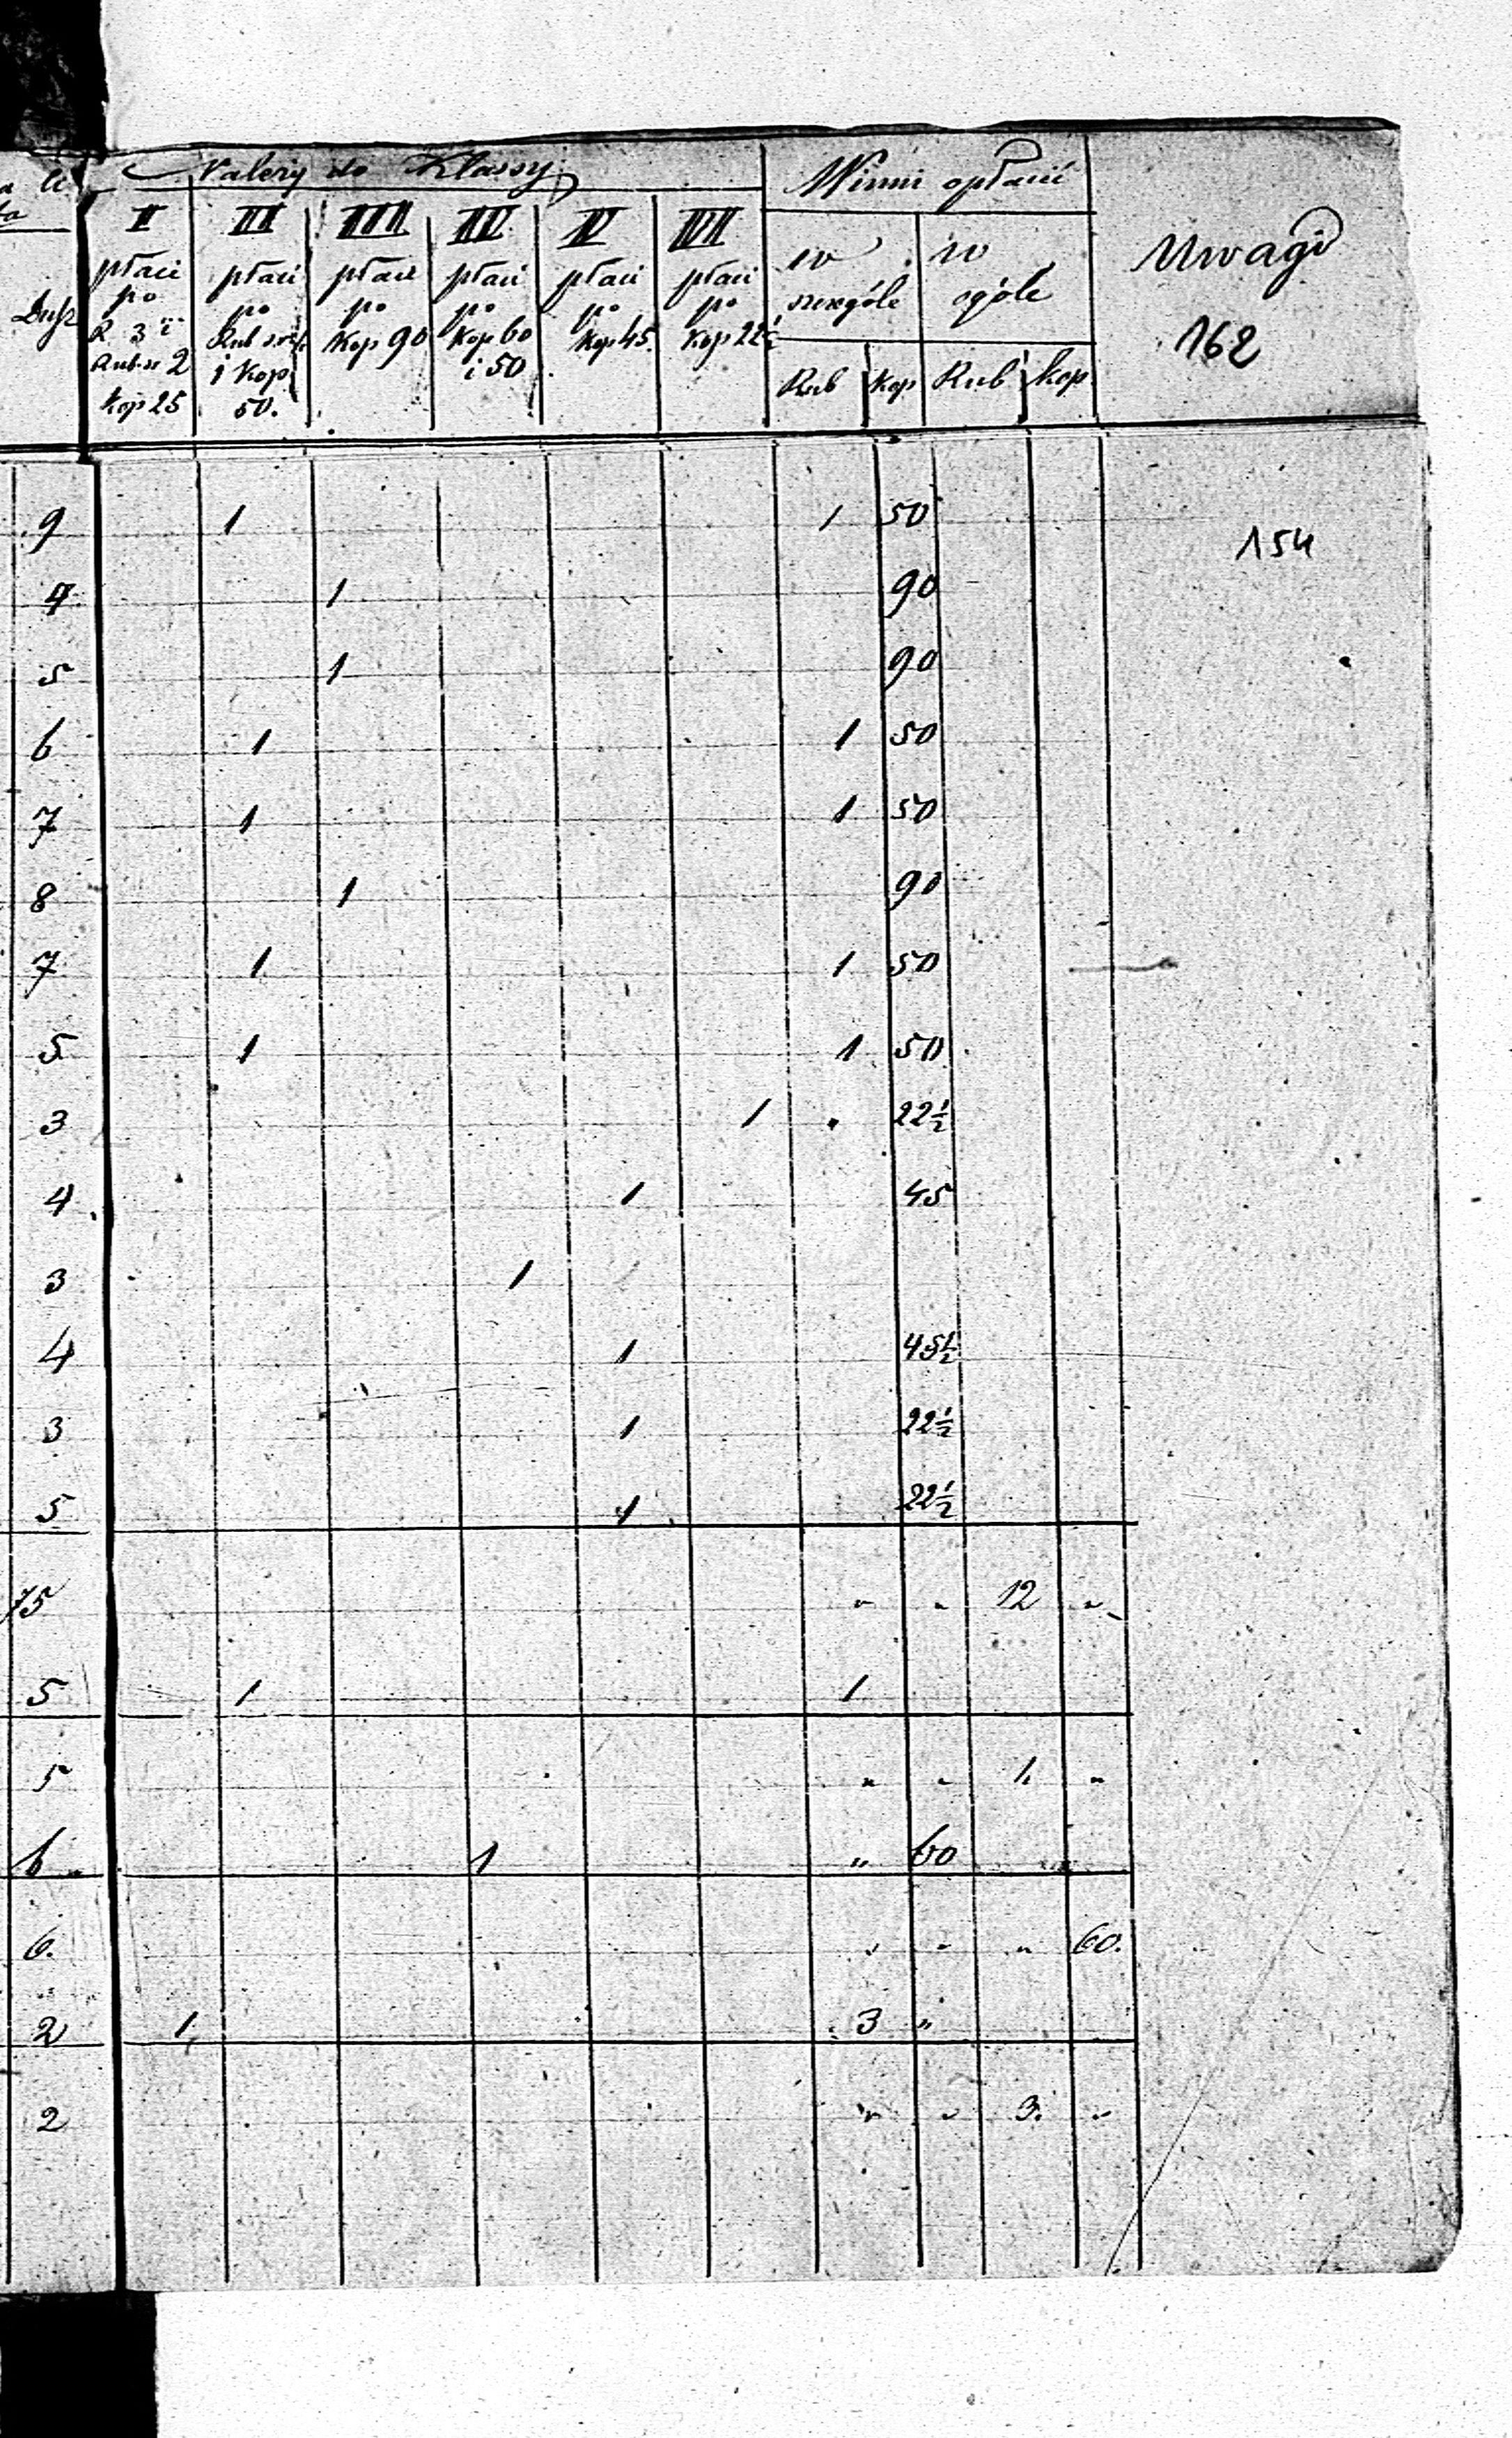 Należy do Klassy
Winni opłacić
Uwagi
162
Dusz
I
płaci
po
R 3 i
Rub. sr 2
Kop 25
II
płaci
po
Rub sreb
1 Kop
50.
III
płaci
po
Kop 90
IV
płaci
po
Kop 60
i 50
V
płaci
po
Kop 45.
VI
płaci
po
Kop 22½
w
szczególe
w
ogóle
Rub Kop Rub kop
9 1 1 50
154
4 1 90
5 1 90
6 1 1 50
7 1 1 50
8 1 90
7 1 1 50
5 1 1 50
3 1 . 22½
4 1 45
3 1
4 1 45½
3 1 22½
5 1 22½
75 " " 12 "
5 1 1
5 " " 1. "
6 1 " 60
6. " " " 60.
2 1 3 "
2 " " 3. "